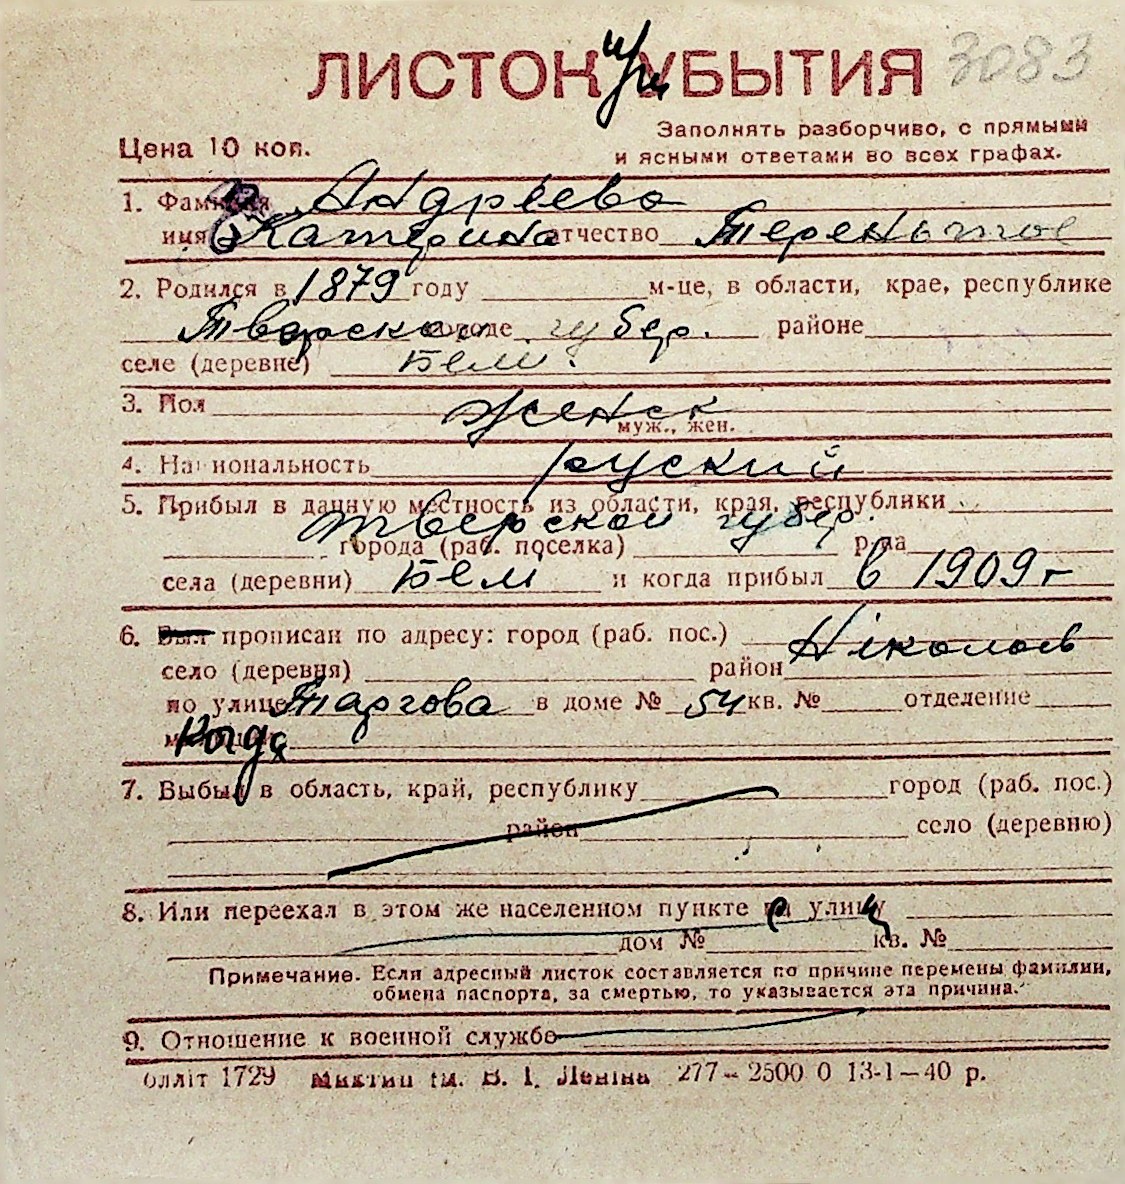 ЛИСТОК УБЫТИЯ 3083
Заполнять разборчиво, с прямыми
Цена 10 коп. и ясными ответами во всех графах.
1. Фамилия Андреева
имя Катерина отчество
2. Родился в 1879 году м-це, в области, крае, республике
Тверской городе губер. районе
селе (деревне) Бели
3. Пол женск
муж., жен.
4. Национальность руский
5. Прибыл в данную местность из области, края, республики
тверской губер.
города (раб. поселка) р-на
села (деревни) Бели и когда прибыл в 1909 г
6. Был прописан по адресу: город (раб. пос.)
Ніколаев
село (деревня) район
по улице Таргова в доме № 54 кв. № отделение
7. Выбыл в область, край, республику город (раб. пос.)
район село (деревню)
8. Или переехал в этом же населенном пункте на улицу
дом № кв. №
Примечание. Если адресный листок составляется по причине перемены фамилии,
обмена паспорта, за смертью, то указывается эта причина.
9. Отношение к военной службе
олліт 1729 ім. В. І. Леніна 277–2500 0 13-1–40 р.